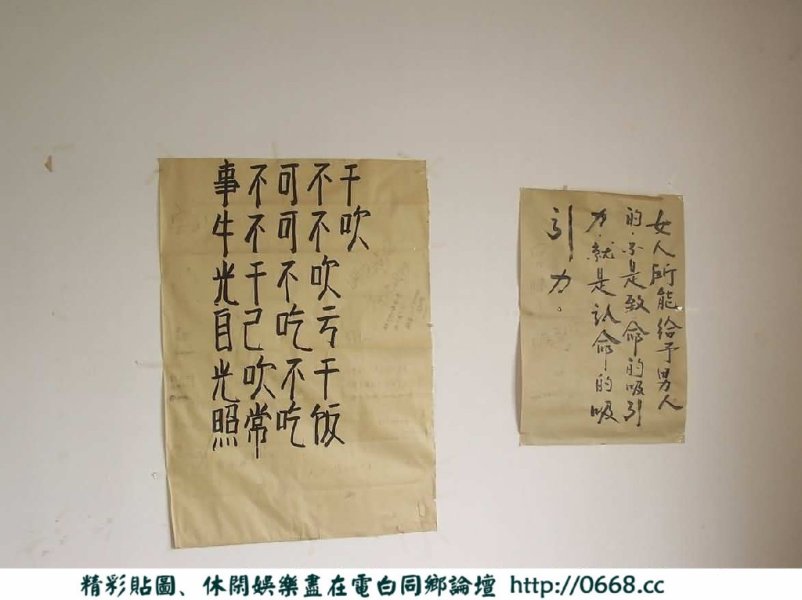 事不可不干
牛不可不吹
光干不吹
自己吃亏
光吹不干
照常吃饭
女人所能给予男人
的，不是致命的吸引
力，就是认命的吸
引力。
精彩貼圖、休閑娛樂盡在電白同鄉論壇 http://0668.cc